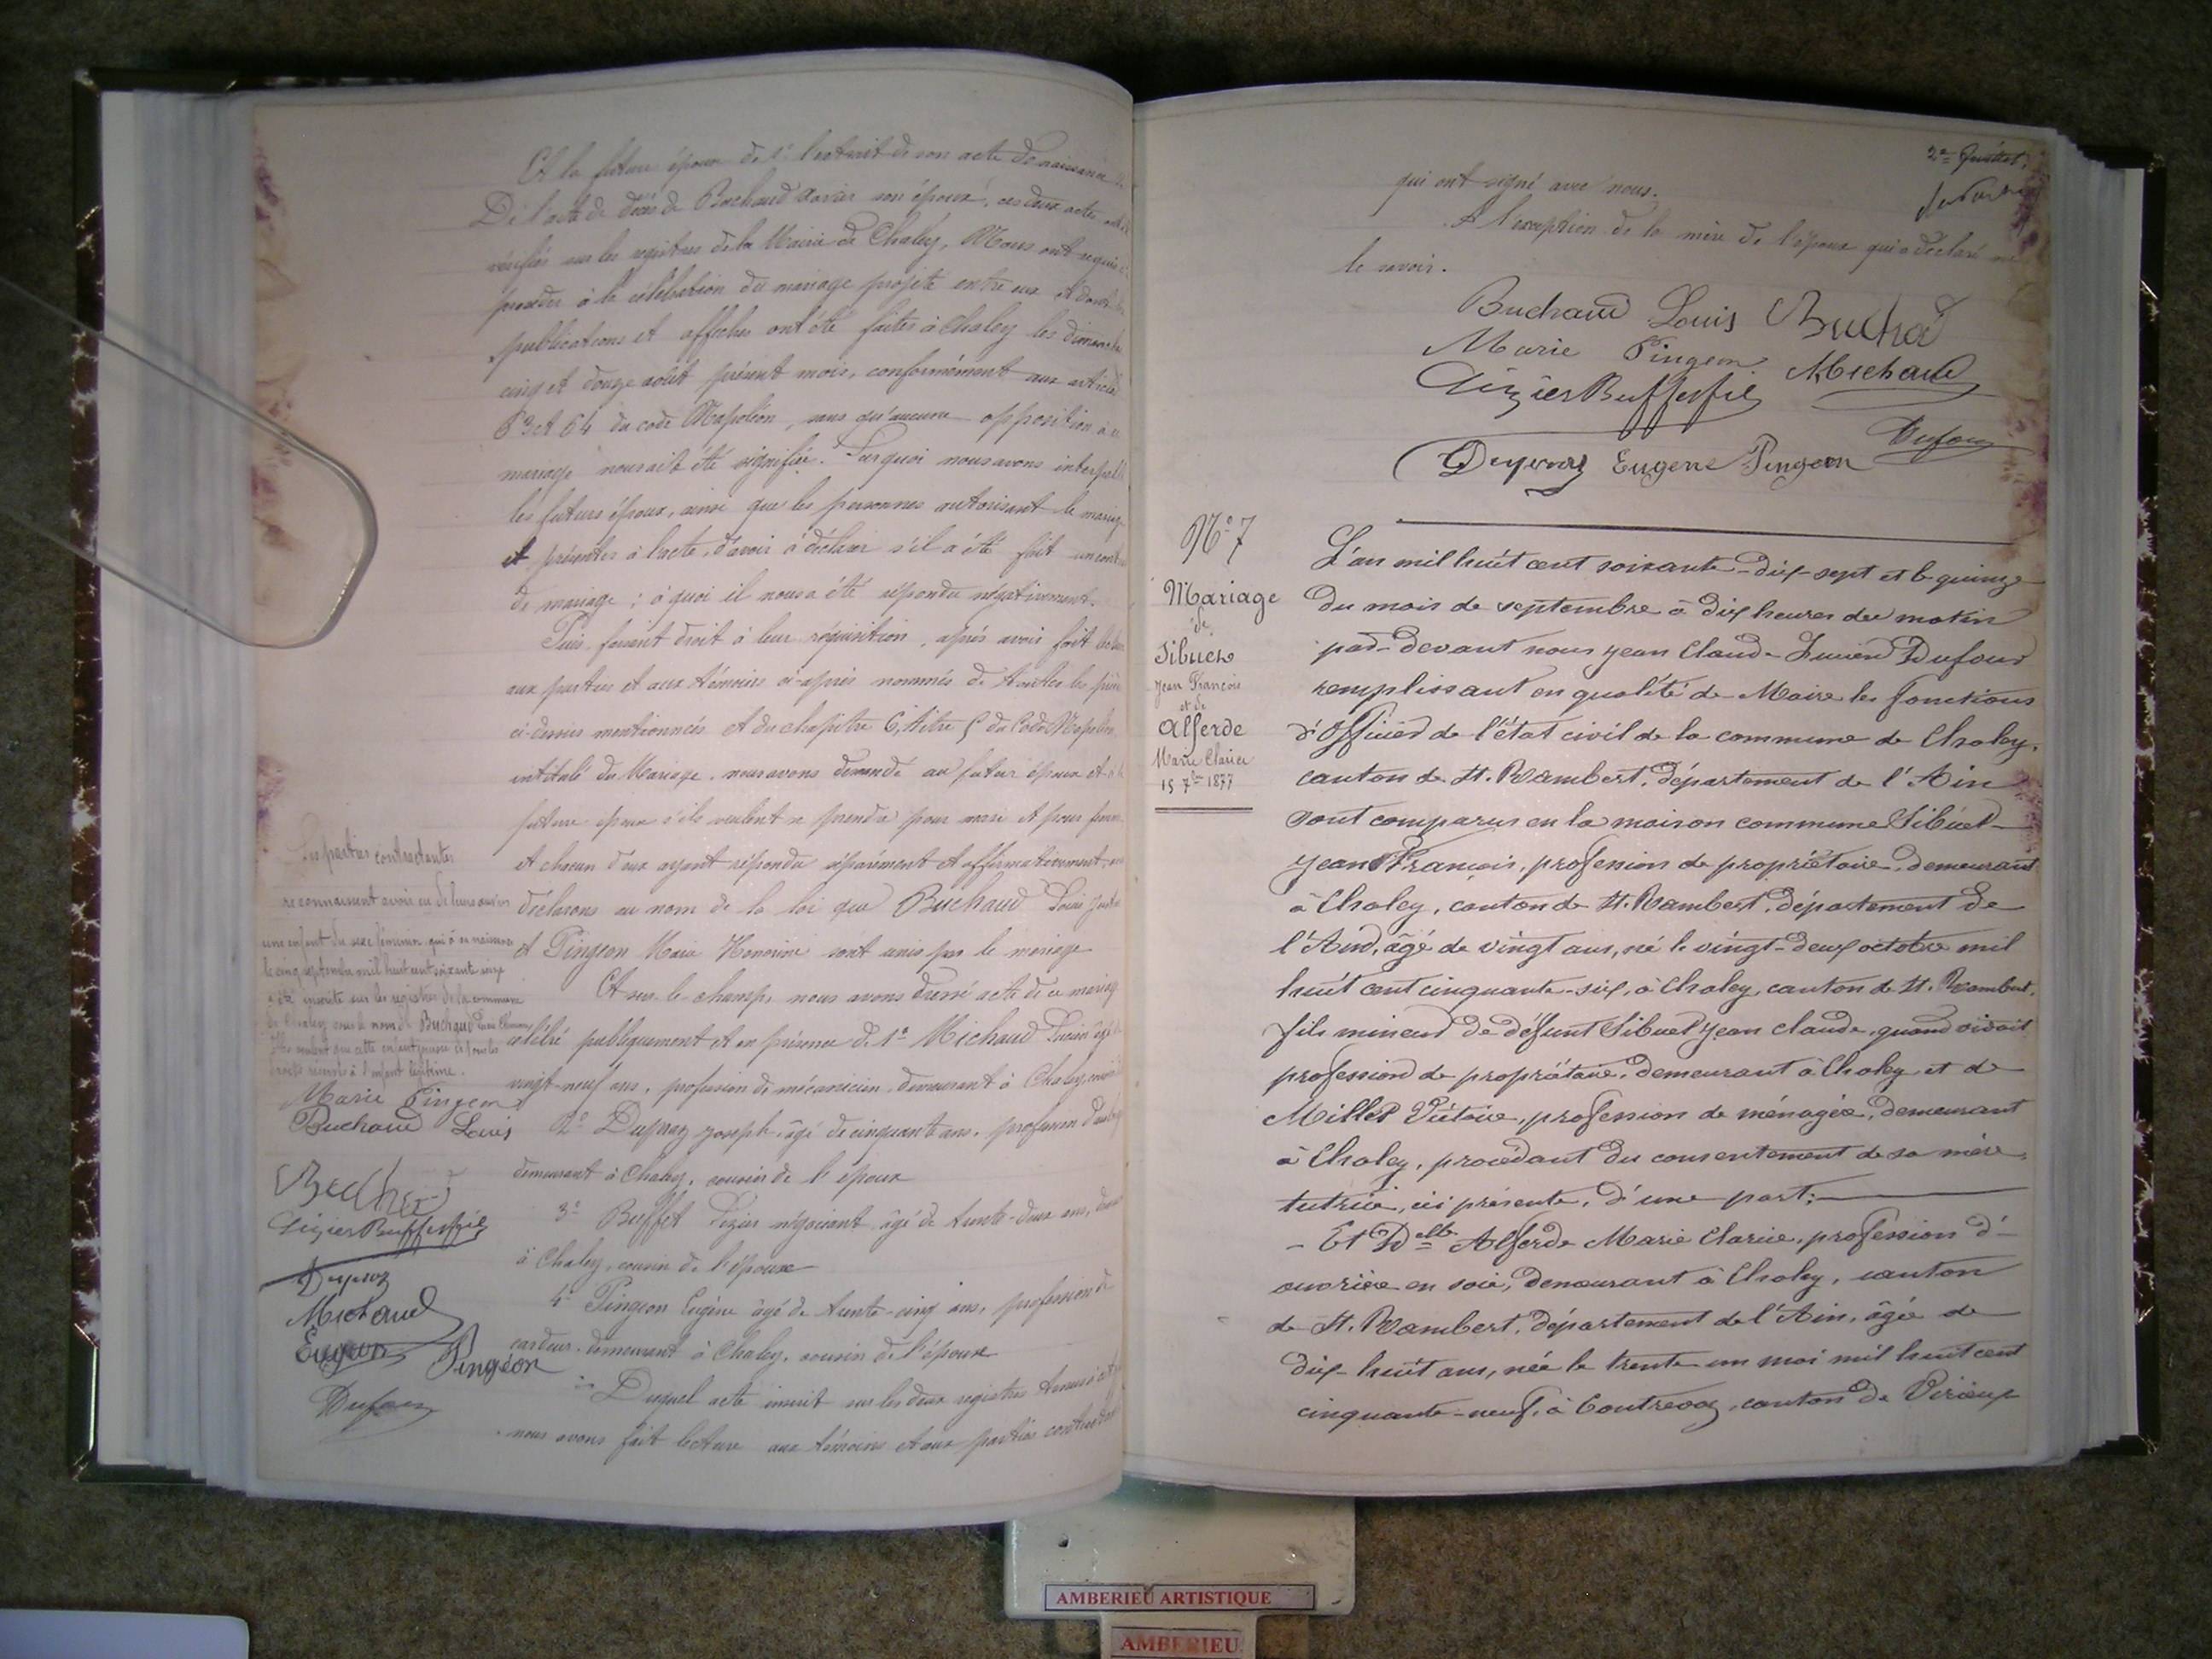 Et la future épouse de 1° l'extrait de son acte de naissance
De l'acte de décès de Buchaud Xavier son époux, ces deux actes
vérifiés sur les registres de la Mairie de Chaley, Nous ont requis
procéder à la célébration du mariage projeté entre eux et dont
publications et affiches ont été faites à Chaley les dimanche
cinq et douze août présent mois, conformément aux articles
63 et 64 du code Napoléon, sans qu'aucune opposition à ce
mariage nous ait été signifiée. Surquoi nous avons interpellé
les futurs époux, ainsi que les personnes autorisant le mariage
et présentes à l'acte, d'avoir à déclarer s'il a été fait un
de mariage ; à quoi il nous a été répondu négativement.
Puis, faisant droit à leur réquisition, après avoir fait
aux parties et aux témoins ci-après nommés de toutes les
ci-dessus mentionnées et du chapitre 6, titre 5 du Code Napoléon
intitulé du Mariage, nous avons demandé au futur époux et
future épouse s'ils veulent se prendre pour mari et pour femme
et chacun d'eux ayant répondu séparément et affirmativement,
déclarons au nom de la loi que Buchaud Louis
et Pingeon Marie Honorine sont unis par le mariage
Et sur le champ, nous avons dressé acte de ce mariage
célébré publiquement et en présence de 1° Michaud Lucien âgé
vingt-neuf ans, profession de mécanicien, demeurant à Chaley,
2° Dupraz Joseph, âgé de cinquante ans, profession
demeurant à Chaley, cousin de l'époux
3° Buffet Lizier négociant âgé de trente-deux ans,
à Chaley, cousin de l'épouse
4° Pingeon Eugène âgé de trente-cinq ans, profession de
cardeur, demeurant à Chaley, cousin de l'épouse
Duquel acte inscrit sur les deux registres tenus à
nous avons fait lecture aux témoins et aux parties
Les parties contractantes
reconnaissent avoir eu de leurs œuvres
une enfant du sexe féminin qui à sa naissance
le cinq septembre mil huit cent soixante seize
a été inscrite sur les registres de la commune
de Chaley sous le nom de Buchaud
Ils veulent que cette enfant jouisse de tous les
droits réservés à l'enfant légitime.
Marie Pingeon
Buchaud Louis
Lizier Buffet fils
Dupraz
Michaud
Eugène Pingeon
Dufour
qui ont signé avec nous.
A l'exception de la mère de l'époux qui a déclaré ne
le savoir.
Buchaud Louis
Marie Pingeon Michaud
Lizier Buffet fils
Dupraz Eugene Pingeon Dufour
N° 7
Mariage
de
Sibuet
Jean François
et de
Alferde
Marie Clarice
15 7bre 1877
L'an mil huit cent soixante-dix-sept et le quinze
du mois de septembre à dix heures du matin
par-devant nous Jean Claude Lucien Dufour
remplissant en qualité de Maire les fonctions
d'Officier de l'état civil de la commune de Chaley,
canton de St. Rambert, département de l'Ain
sont comparus en la maison commune Sibuet
Jean François, profession de propriétaire, demeurant
à Chaley, canton de St. Rambert, département de
l'Ain, âgé de vingt ans, né le vingt-deux octobre mil
huit cent cinquante-six, à Chaley, canton de St. Rambert,
fils mineur de défunt Sibuet Jean Claude, quand vivait
profession de propriétaire, demeurant à Chaley et de
Millet Victoire, profession de ménagère, demeurant
à Chaley, procédant du consentement de sa mère,
tutrice, ici présente, d'une part;
- Et Delle Alferde Marie Clarice, profession d'
ouvrière en soie, demeurant à Chaley, canton
de St. Rambert, département de l'Ain, âgée de
dix-huit ans, née le trente un mai mil huit cent
cinquante-neuf, à Contrevoz, canton de Virieux
AMBERIEU ARTISTIQUE
AMBERIEU